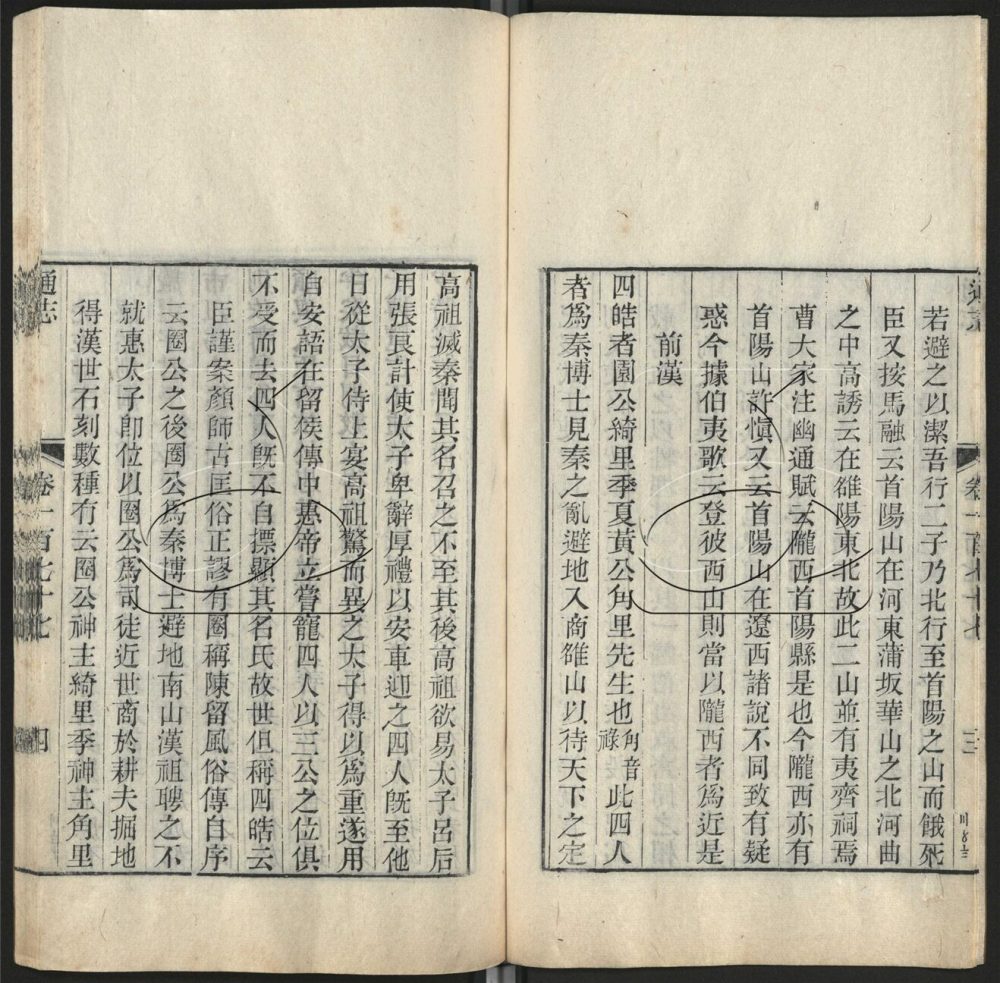 若避之以潔吾行二子乃北行至首陽之山而餓死
臣又按馬融云首陽山在河東蒲坂華山之北河曲
之中高誘云在雒陽東北故此二山並有夷齊祠焉
曹大家注幽通賦云隴西首陽縣是也今隴西亦有
首陽山許慎又云首陽山在遼西諸說不同致有疑
惑今據伯夷歌云登彼西山則當以隴西者爲近是
前漢
四皓者園公綺里季夏黃公角里先生也角音祿此四人
者爲秦博士見秦之亂避地入商雒山以待天下之定
高祖滅秦聞其名召之不至其後高祖欲易太子呂后
用張良計使太子卑辭厚禮以安車迎之四人旣至他
日從太子侍上宴高祖驚而異之太子得以爲重遂用
自安語在留侯傳中惠帝立嘗寵四人以三公之位俱
不受而去四人旣不自摽顯其名氏故世但稱四皓云
臣謹案顏師古匡俗正謬有圈稱陳留風俗傳自序
云圈公之後圈公爲秦博士避地南山漢祖聘之不
就惠太子卽位以圈公爲司徒近世商於耕夫掘地
得漢世石刻數種有云圈公神主綺里季神主角里
通志
卷一百七十七
四